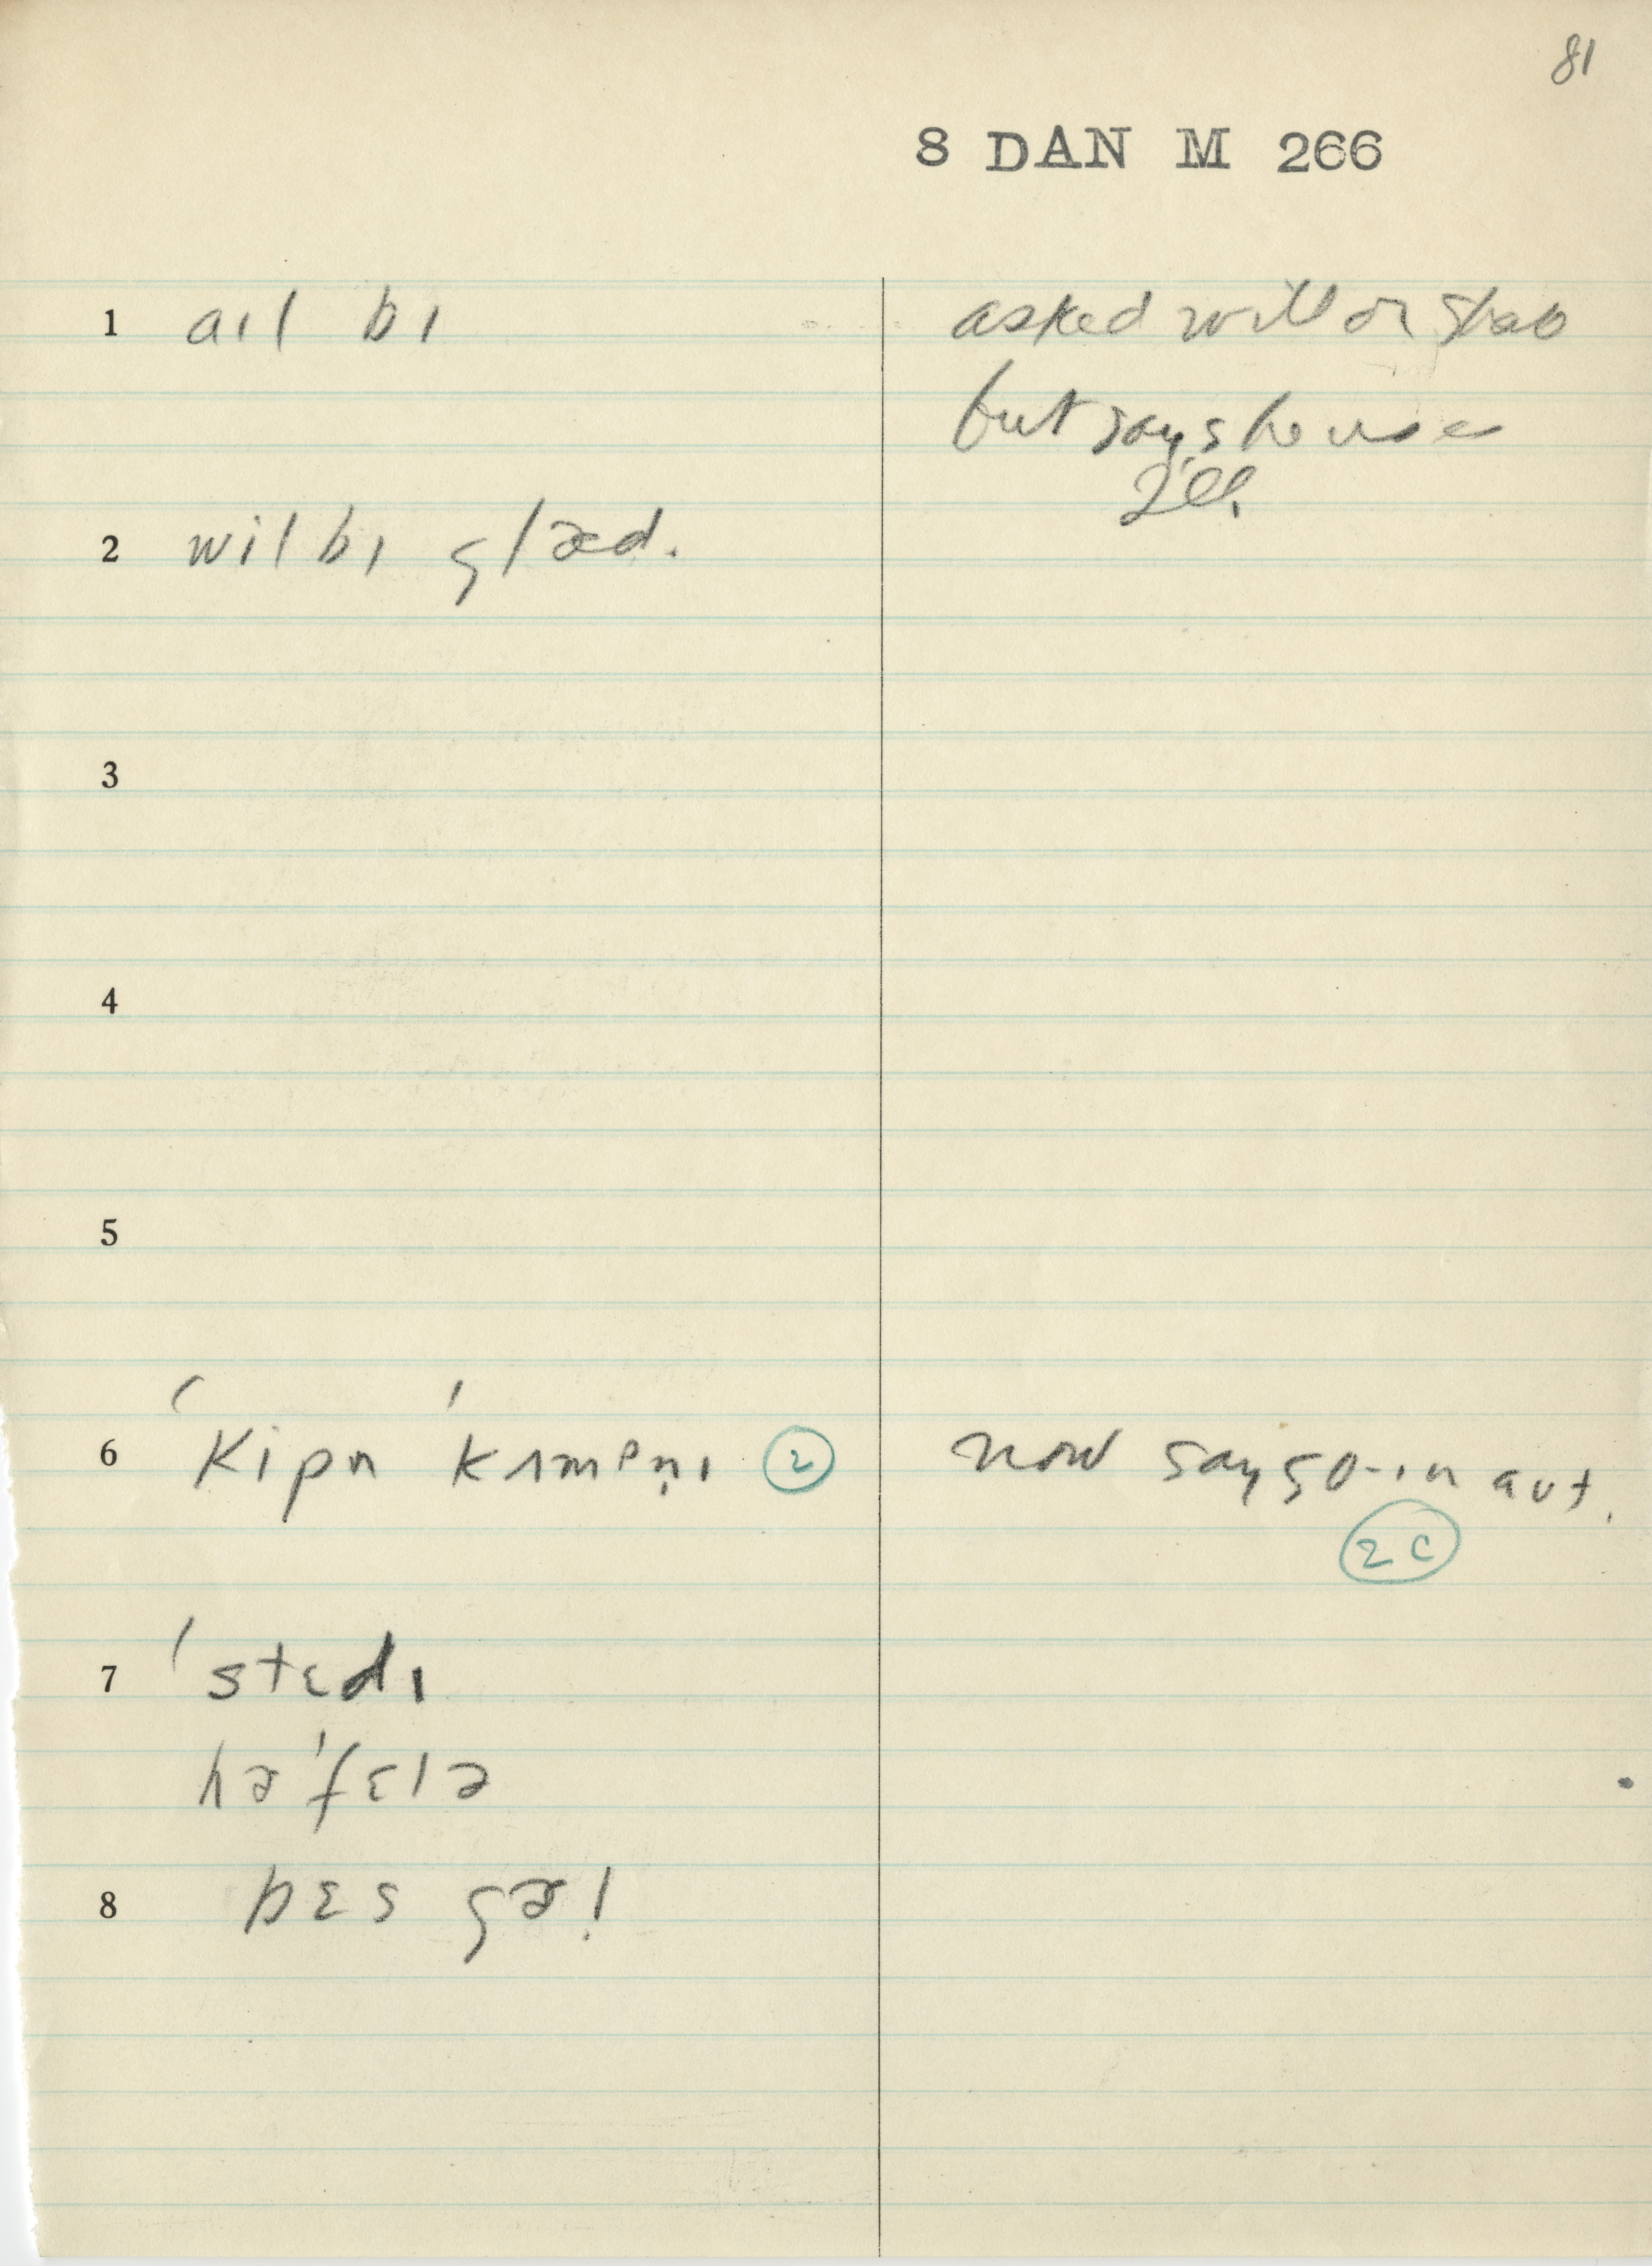 81
8 DAN M 266
1 aɪl bɪ asked will or shall
but says he uses
I'll
2 wil bɪ glæd.
3
4
5
6 ˈkipn ˈkʌmpnɪ ② now say go-ɪn aut.
2c
7 ˈstɛdɪ
hə ˈfɛlə
8 bɛs gəl